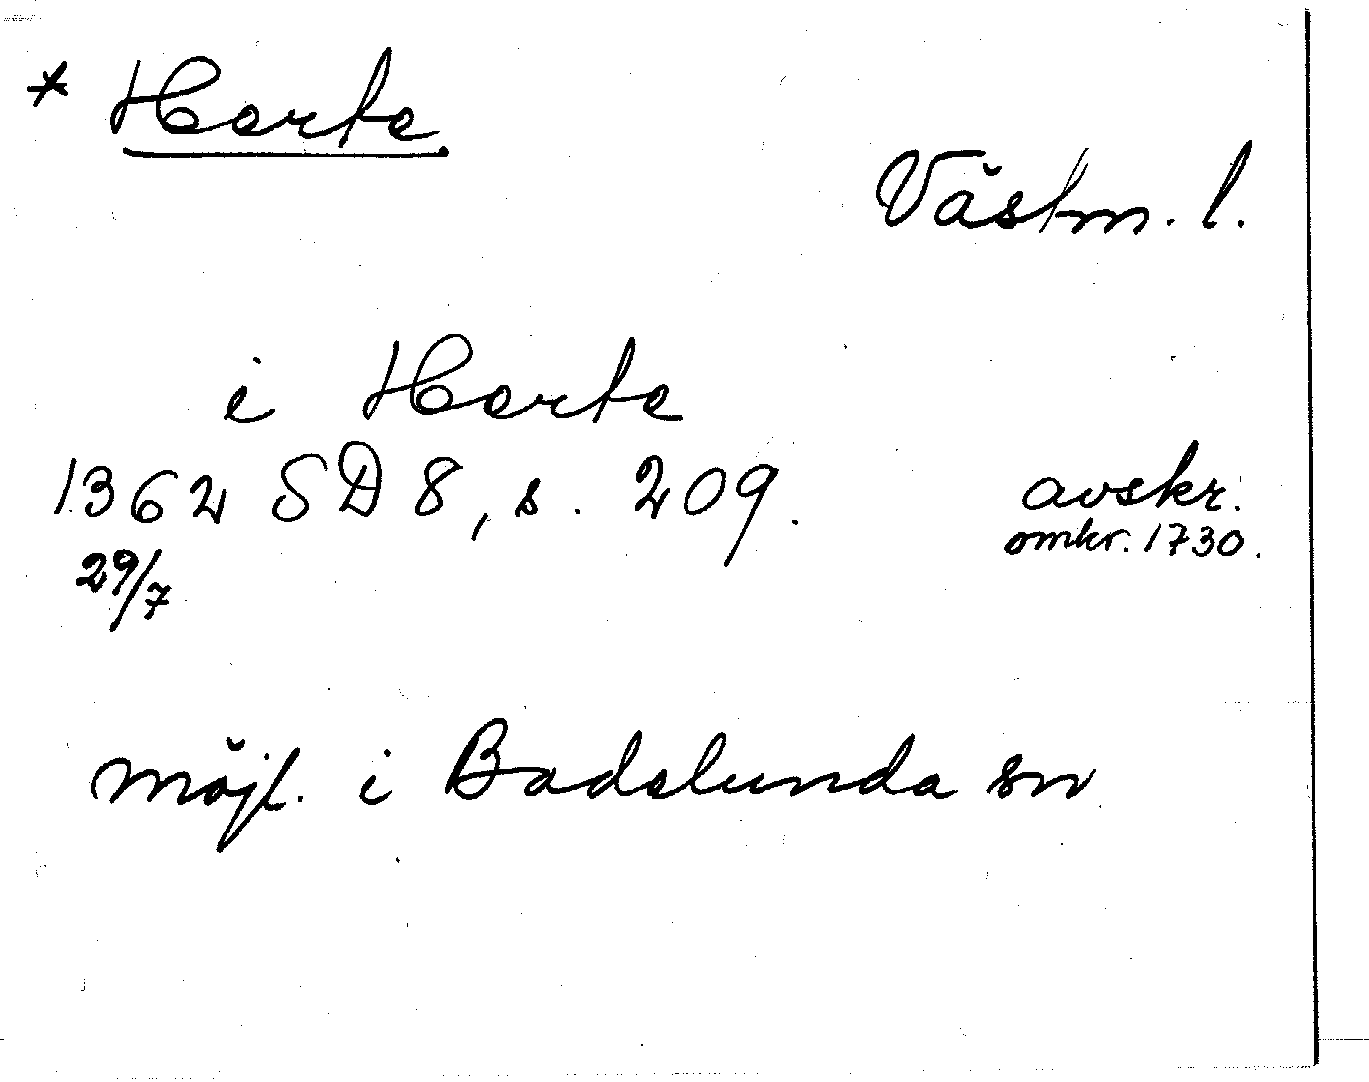 * Harta
Västm. l.
i Harta
1362 SD 8, s. 209. avskr.
29/7 omkr. 1730.
möjl. i Badelunda sn